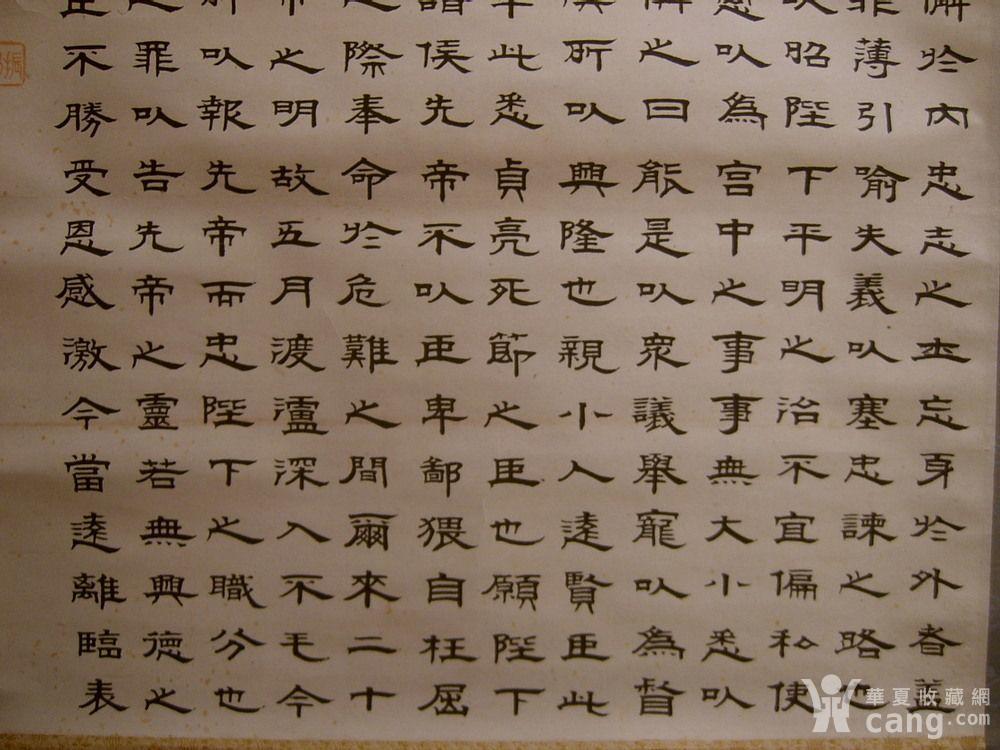 懈於內忠志之士忘身於外者蓋
菲薄引喻失義以塞忠諫之路也
以昭陛下平明之治不宜偏私使
愚以為宫中之事事無大小悉以
之曰能是以衆議舉寵以為督
漢所以興隆也親小人遠賢臣此
此悉貞亮死節之臣也願陛下
諸侯先帝不以臣卑鄙猥自枉屈
之際奉命於危難之間爾來二十
帝之明故五月渡瀘深入不毛今
所以報先帝而忠陛下之職分也
之罪以告先帝之靈若無興德之
臣不勝受恩感激今當遠離臨表
華夏收藏網
cang.com